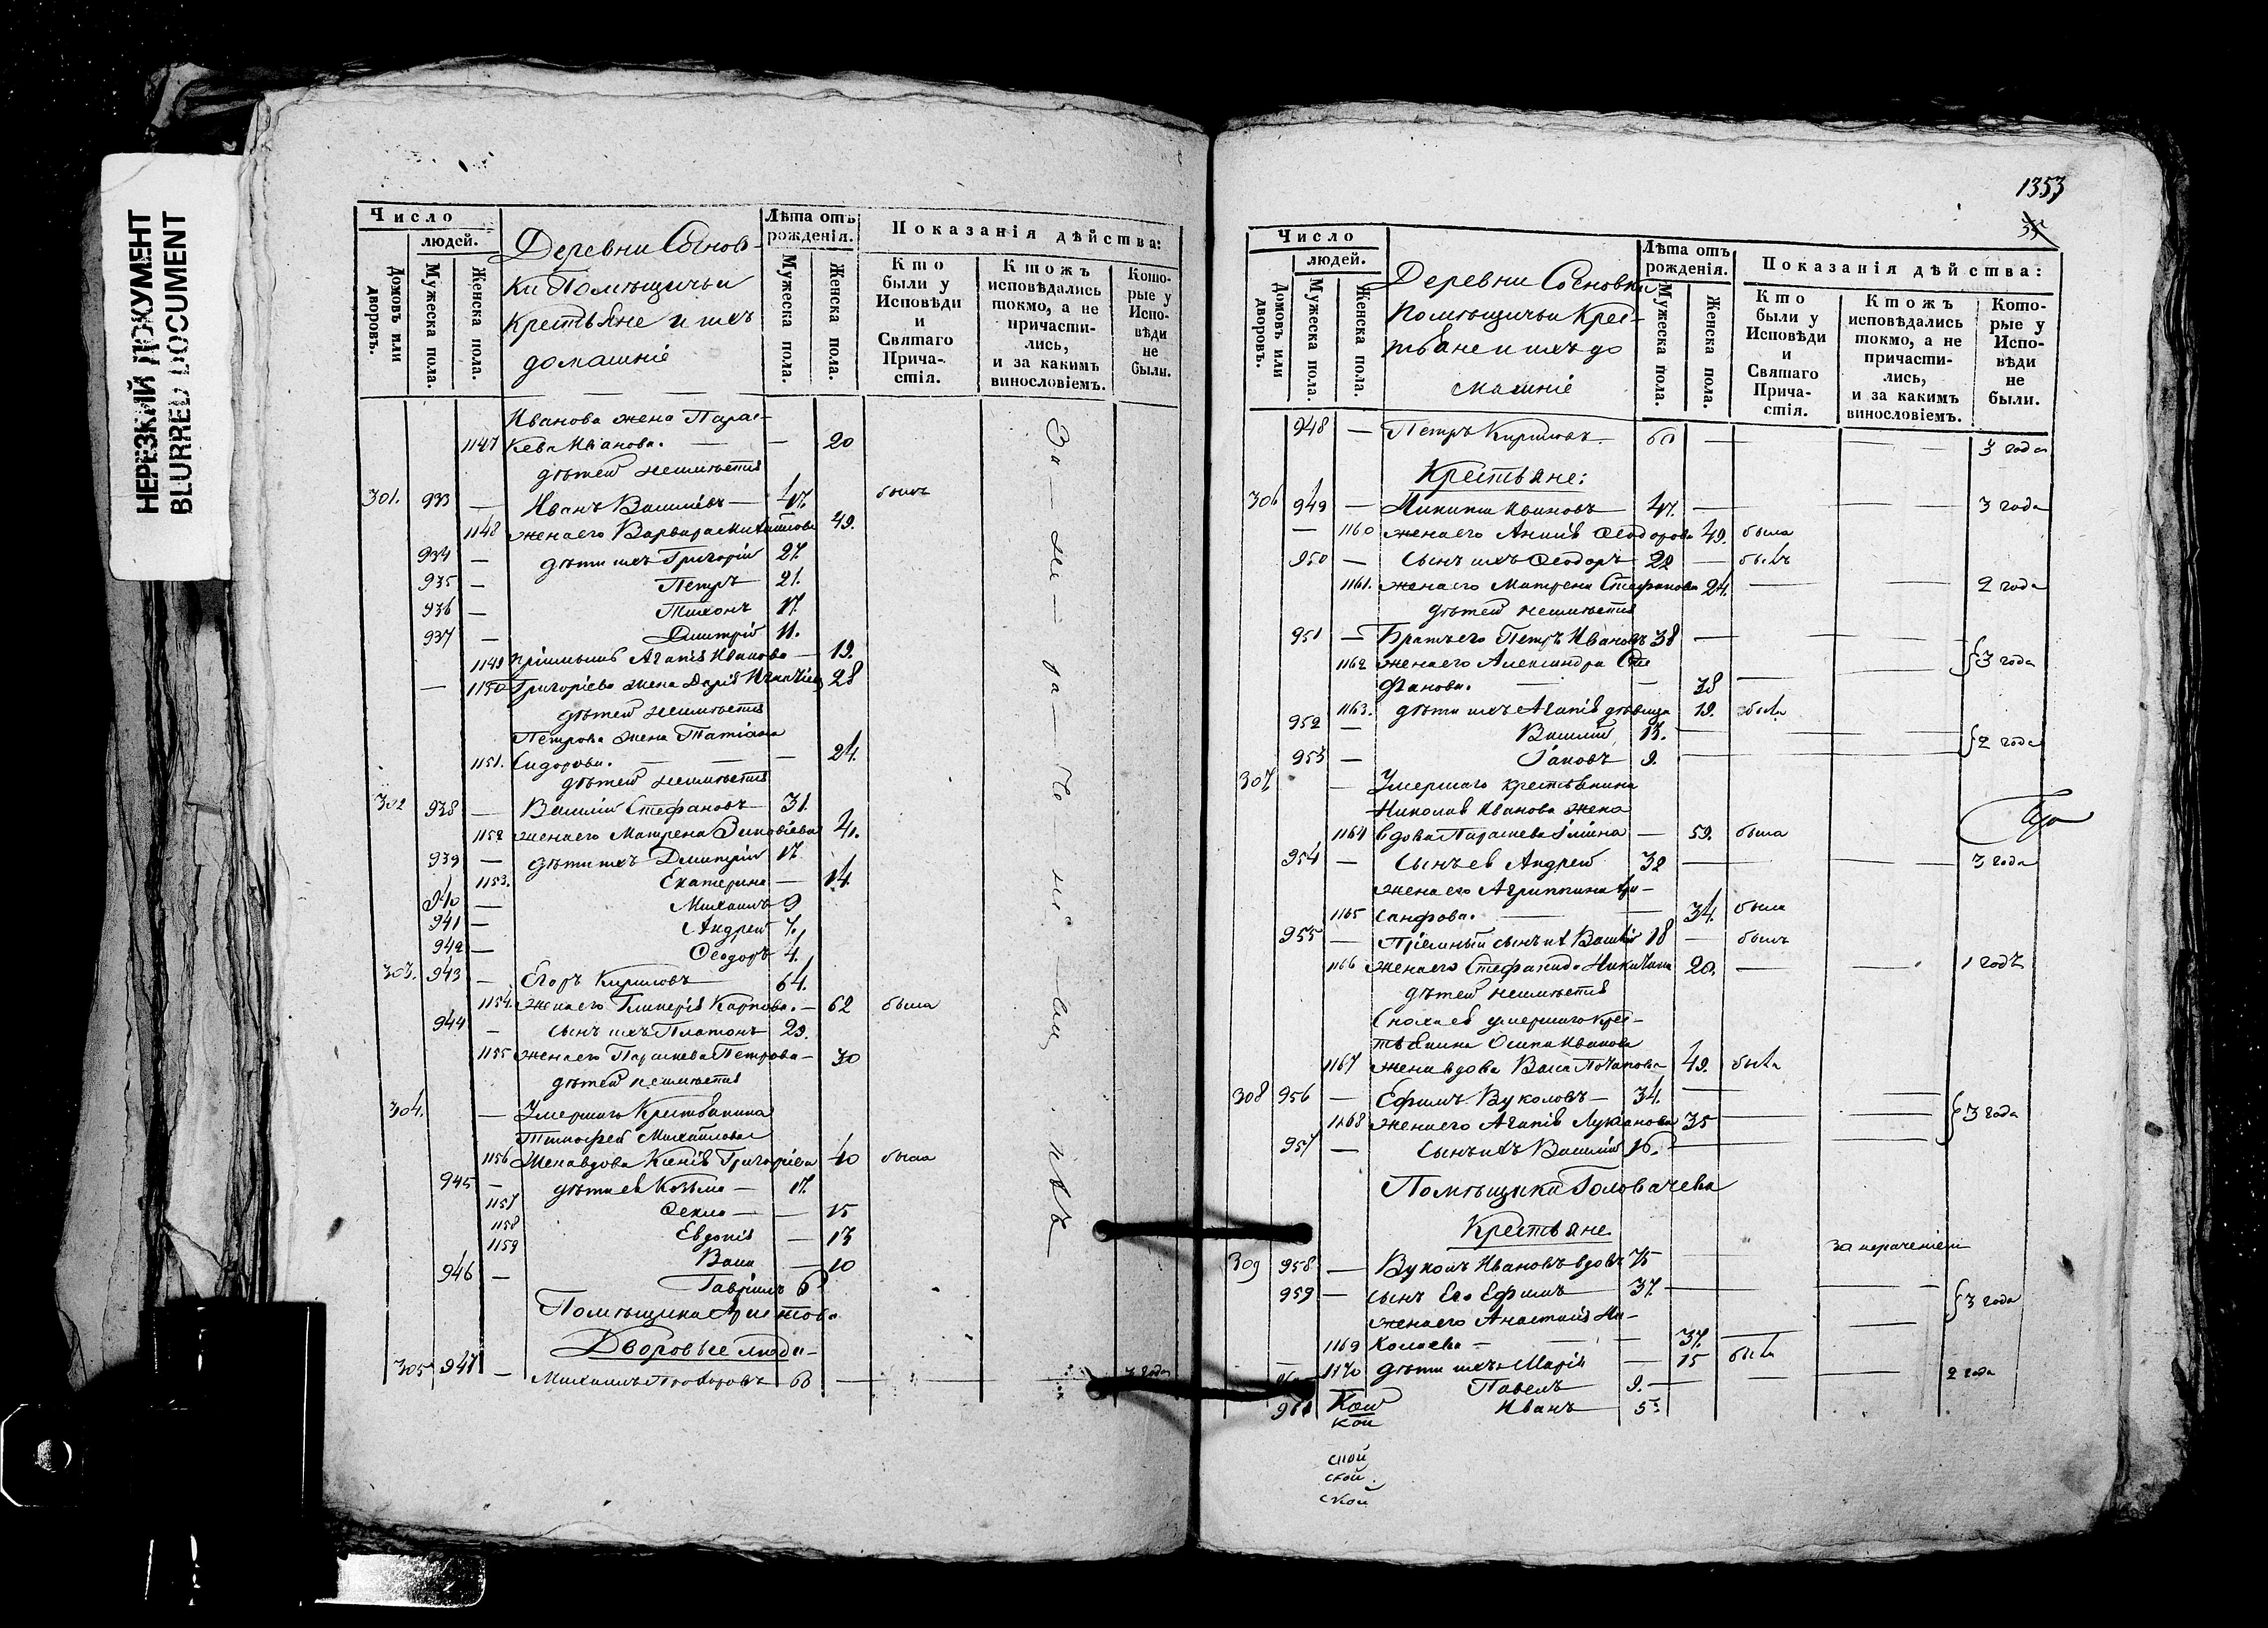 НЕРЕЗКИЙ ДОКУМЕНТ
BLURRED DOCUMENT
Число
людей.
Домовъ или дворовъ.
Мужеска пола.
Женска пола.
Деревни Соснов-
ки Помѣщичьи
Крестьяне и ихъ
домашніе
Лѣта отъ рожденія.
Мужеска пола.
Женска пола.
Показанія дѣйства:
Кто были у Исповѣди и Святаго Причастія.
Ктожъ исповѣдались токмо, а не причастились, и за какимъ винословіемъ.
Которые у Исповѣди не были.
Иванова жена Парас-
1147 кева Иванова. — — 20
дѣтей неимѣетъ
301. 933 — Иванъ Васильевъ — 47. былъ
1148 жена его Варвара Михайлова 49.
934 — дѣти ихъ Григорій 27.
935 — Петръ 21.
936 — Тихонъ 17.
937 — Дмитрій 11.
1149 Агапія Иванова — 19.
— 1150 Григоріева жена Дарія 28
дѣтей неимѣетъ
Петрова жена Татіана
1151. Сидорова. — — — 24.
дѣтей неимѣетъ
302 938 — Василій Стефановъ — 31.
1152 жена его Матрена Зиновіева 41.
939 — дѣти ихъ Дмитрій 17.
1153. Екатерина — 14.
940 — Михаилъ 9
941 — Андрей 7.
942 — Ѳеодоръ 4.
303. 943 — Егоръ Кириловъ 64.
1154. жена его Гликерія Карпова. — 62 была
944 — сынъ ихъ Платонъ 29.
1155 жена его Параскева Петрова — 30
дѣтей неимѣетъ
304. — Умершаго Крестьянина
Тимофея Михайлова
1156 Жена вдова Ксенія Григоріева 40 была
945 — дѣти ея Козьма — 17.
1157 Ѳекла — — 15
1158 Евдокія — 13
1159 Васса — 10
946 — Гавріилъ 6
Помѣщика
Дворовые люди
305 947 — Михаилъ Прохоровъ 60 — — — 3 года
1353
35
Число
людей.
Домовъ или дворовъ.
Мужеска пола.
Женска пола.
Деревни Сосновки
Помѣщичьи Крес-
тьяне и ихъ до
машніе
Лѣта отъ рожденія.
Мужеска пола.
Женска пола.
Показанія дѣйства:
Кто были у Исповѣди и Святаго Причастія.
Ктожъ исповѣдались токмо, а не причастились, и за какимъ винословіемъ.
Которые у Исповѣди не были.
948 — Петръ Кириловъ 60 — — 3 года
Крестьяне:
306 949 — Никита Ивановъ 47. — — 3 года
— 1160 жена его Ѳеодорова 49. была
950 — Сынъ ихъ Ѳеодоръ 22 — былъ
1161. жена его Матрена Стефанова 24. — — 2 года
дѣтей неимѣетъ
951 — Братъ его Петръ Ивановъ 38 —
1162 жена его Александра Сте
фанова. — — 38 — — } 3 года
1163. дѣти ихъ Агапія дѣвица 19. была
952 — Василій 13.
953 — Іаковъ 9. } 2 года
307 — Умершаго крестьянина
Николая Иванова жена
1164 вдова Параскева — 59. была
954 — Сынъ ея Андрей 32 — — 3 года
жена его Агриппина
1165 санфова. — — 34. была
955 — Пріемный сынъ ихъ Василій 18 — былъ
1166 жена его Стефанида Никитина 20. — — 1 годъ
дѣтей неимѣетъ
Сноха ея умершаго Крес-
тьянина Осипа Иванова
1167 жена вдова Васса Потапова 49. была
308 956 — Ефимъ Вуколовъ — 34.
1168 жена его Агапія Лукьянова 35 } 3 года
957 — Сынъ ихъ Василій 16.
Помѣщика Головачева
Крестьяне
309 958 — Вуколъ Ивановъ вдовъ 75 — — за нераченіемъ
959 — сынъ его Ефимъ 37. — — } 3 года
жена его Анастасія Ни-
1169 колаева — — — 37.
— 1170 дѣти ихъ Марія — 15 была
Павелъ 9. — — 2 года
961 Иванъ 5.
кой
ской
ской